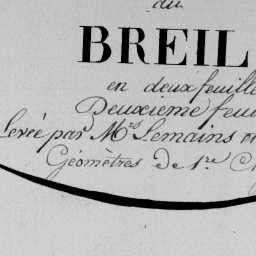 du
BREIL
en deux feuille
Deuxieme feui
Levée par Mrs Lemains
Géomètres de 1.re C